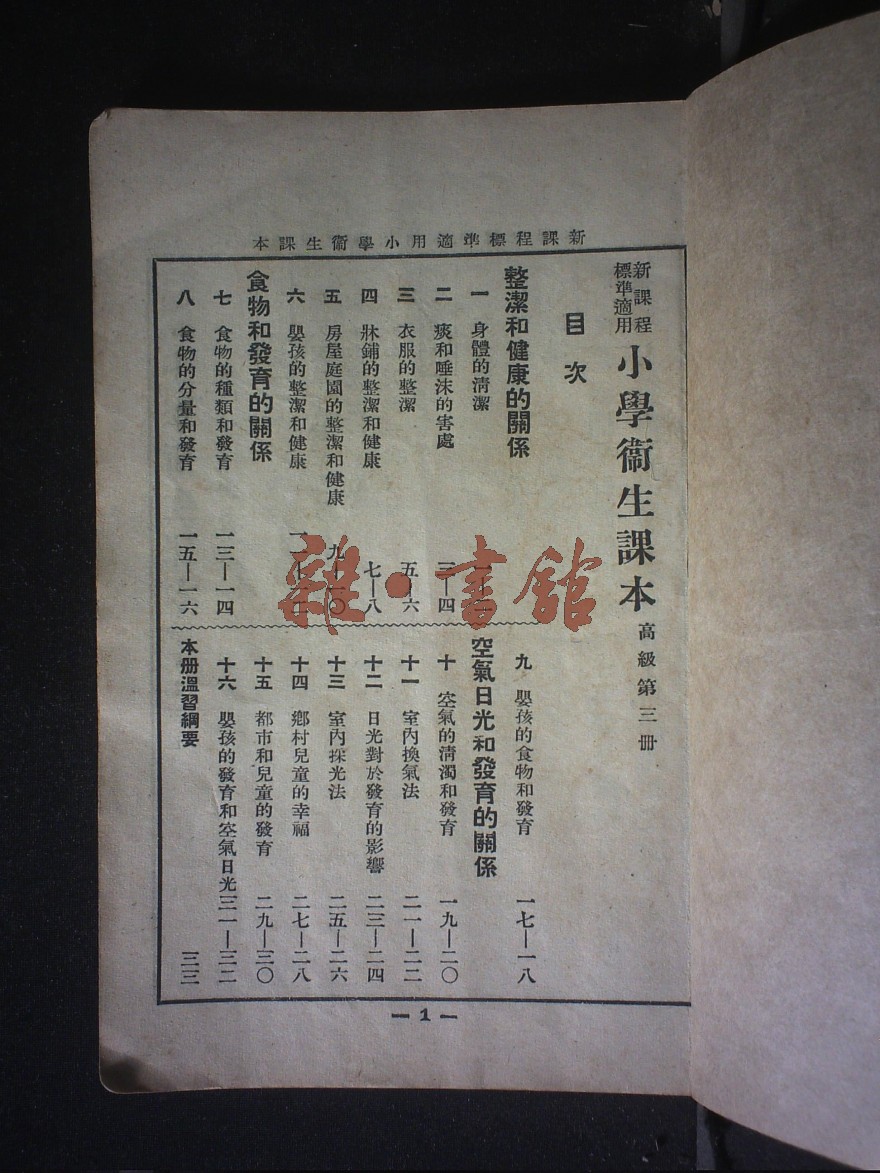 新課程標準適用小學衞生課本
新課程
標準適用
小學衞生課本
高級第三册
目次
整潔和健康的關係
一 身體的淸潔
二 痰和唾沫的害處 三—四
三 衣服的整潔 五—六
四 牀鋪的整潔和健康 七—八
五 房屋庭園的整潔和健康 九—一〇
六 嬰孩的整潔和健康 一一—一二
食物和發育的關係
七 食物的種類和發育 一三—一四
八 食物的分量和發育 一五—一六
九 嬰孩的食物和發育 一七—一八
空氣日光和發育的關係
十 空氣的淸濁和發育 一九—二〇
十一 室內換氣法 二一—二二
十二 日光對於發育的影響 二三—二四
十三 室內採光法 二五—二六
十四 鄉村兒童的幸福 二七—二八
十五 都市和兒童的發育 二九—三〇
十六 嬰孩的發育和空氣日光 三一—三二
本册溫習綱要 三三
— 1 —
雜·書館